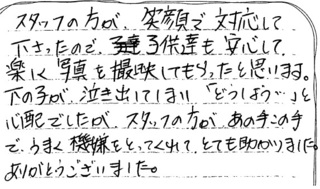 スタッフの方が、笑顔で対応して
下さったので、子供達も安心して
楽しく写真を撮映してもらったと思います。
下の子が、泣き出してしまい「どうしよう…」と
心配でしたが、スタッフの方が、あの手この手
で、うまく機嫌をとってくれて、とても助かりました。
ありがとうございました。